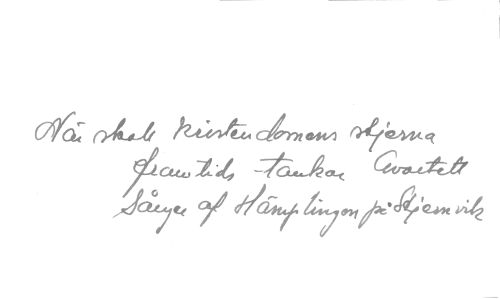 När skall kristendomens stjerna
framtids-tankar Qvartett
Sånger af Hämplingen på Stjernvik